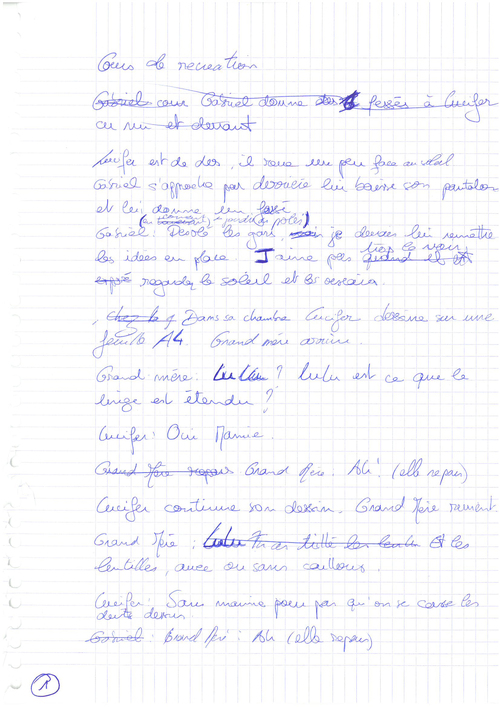 Cours de recreation
Gabriel cour Gabriel donne des 6 fessés à Lucifer
cu nu et devant
Lucifer est de dos, il reve un peu face au soleil
Gabriel s'approche par derrière lui baisse son pantalon
et lui donne un
(en perdre poles)
Gabriel: Desolé les gars, je devais lui remettre
les idées en place. J'aime pas le voir quand il est
regarder le soleil et les oiseaux.
Chez la Dans sa chambre Lucifer dessine sur une
feuille A4. Grand mère arrive.
Grand mère. Lulu? Lulu est ce que le
linge est étendu?
Lucifer: Oui Mamie.
Grand Mère repars Grand Mère. Ah! (elle repars)
Lucifer continue son dessin. Grand Mère revient.
Grand Mère: Lulu Tu as trillé les lentilles Et les
lentilles, avec ou sans cailloux.
Lucifer: Sans mamie pour pas qu'on se casse les
dents dessus.
Gabriel: Grand Mère: Ah (elle repars)
1